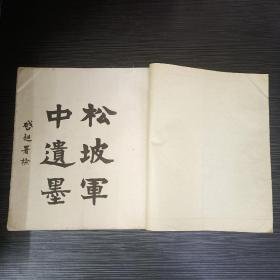 松坡軍
中遺墨
啟超署檢